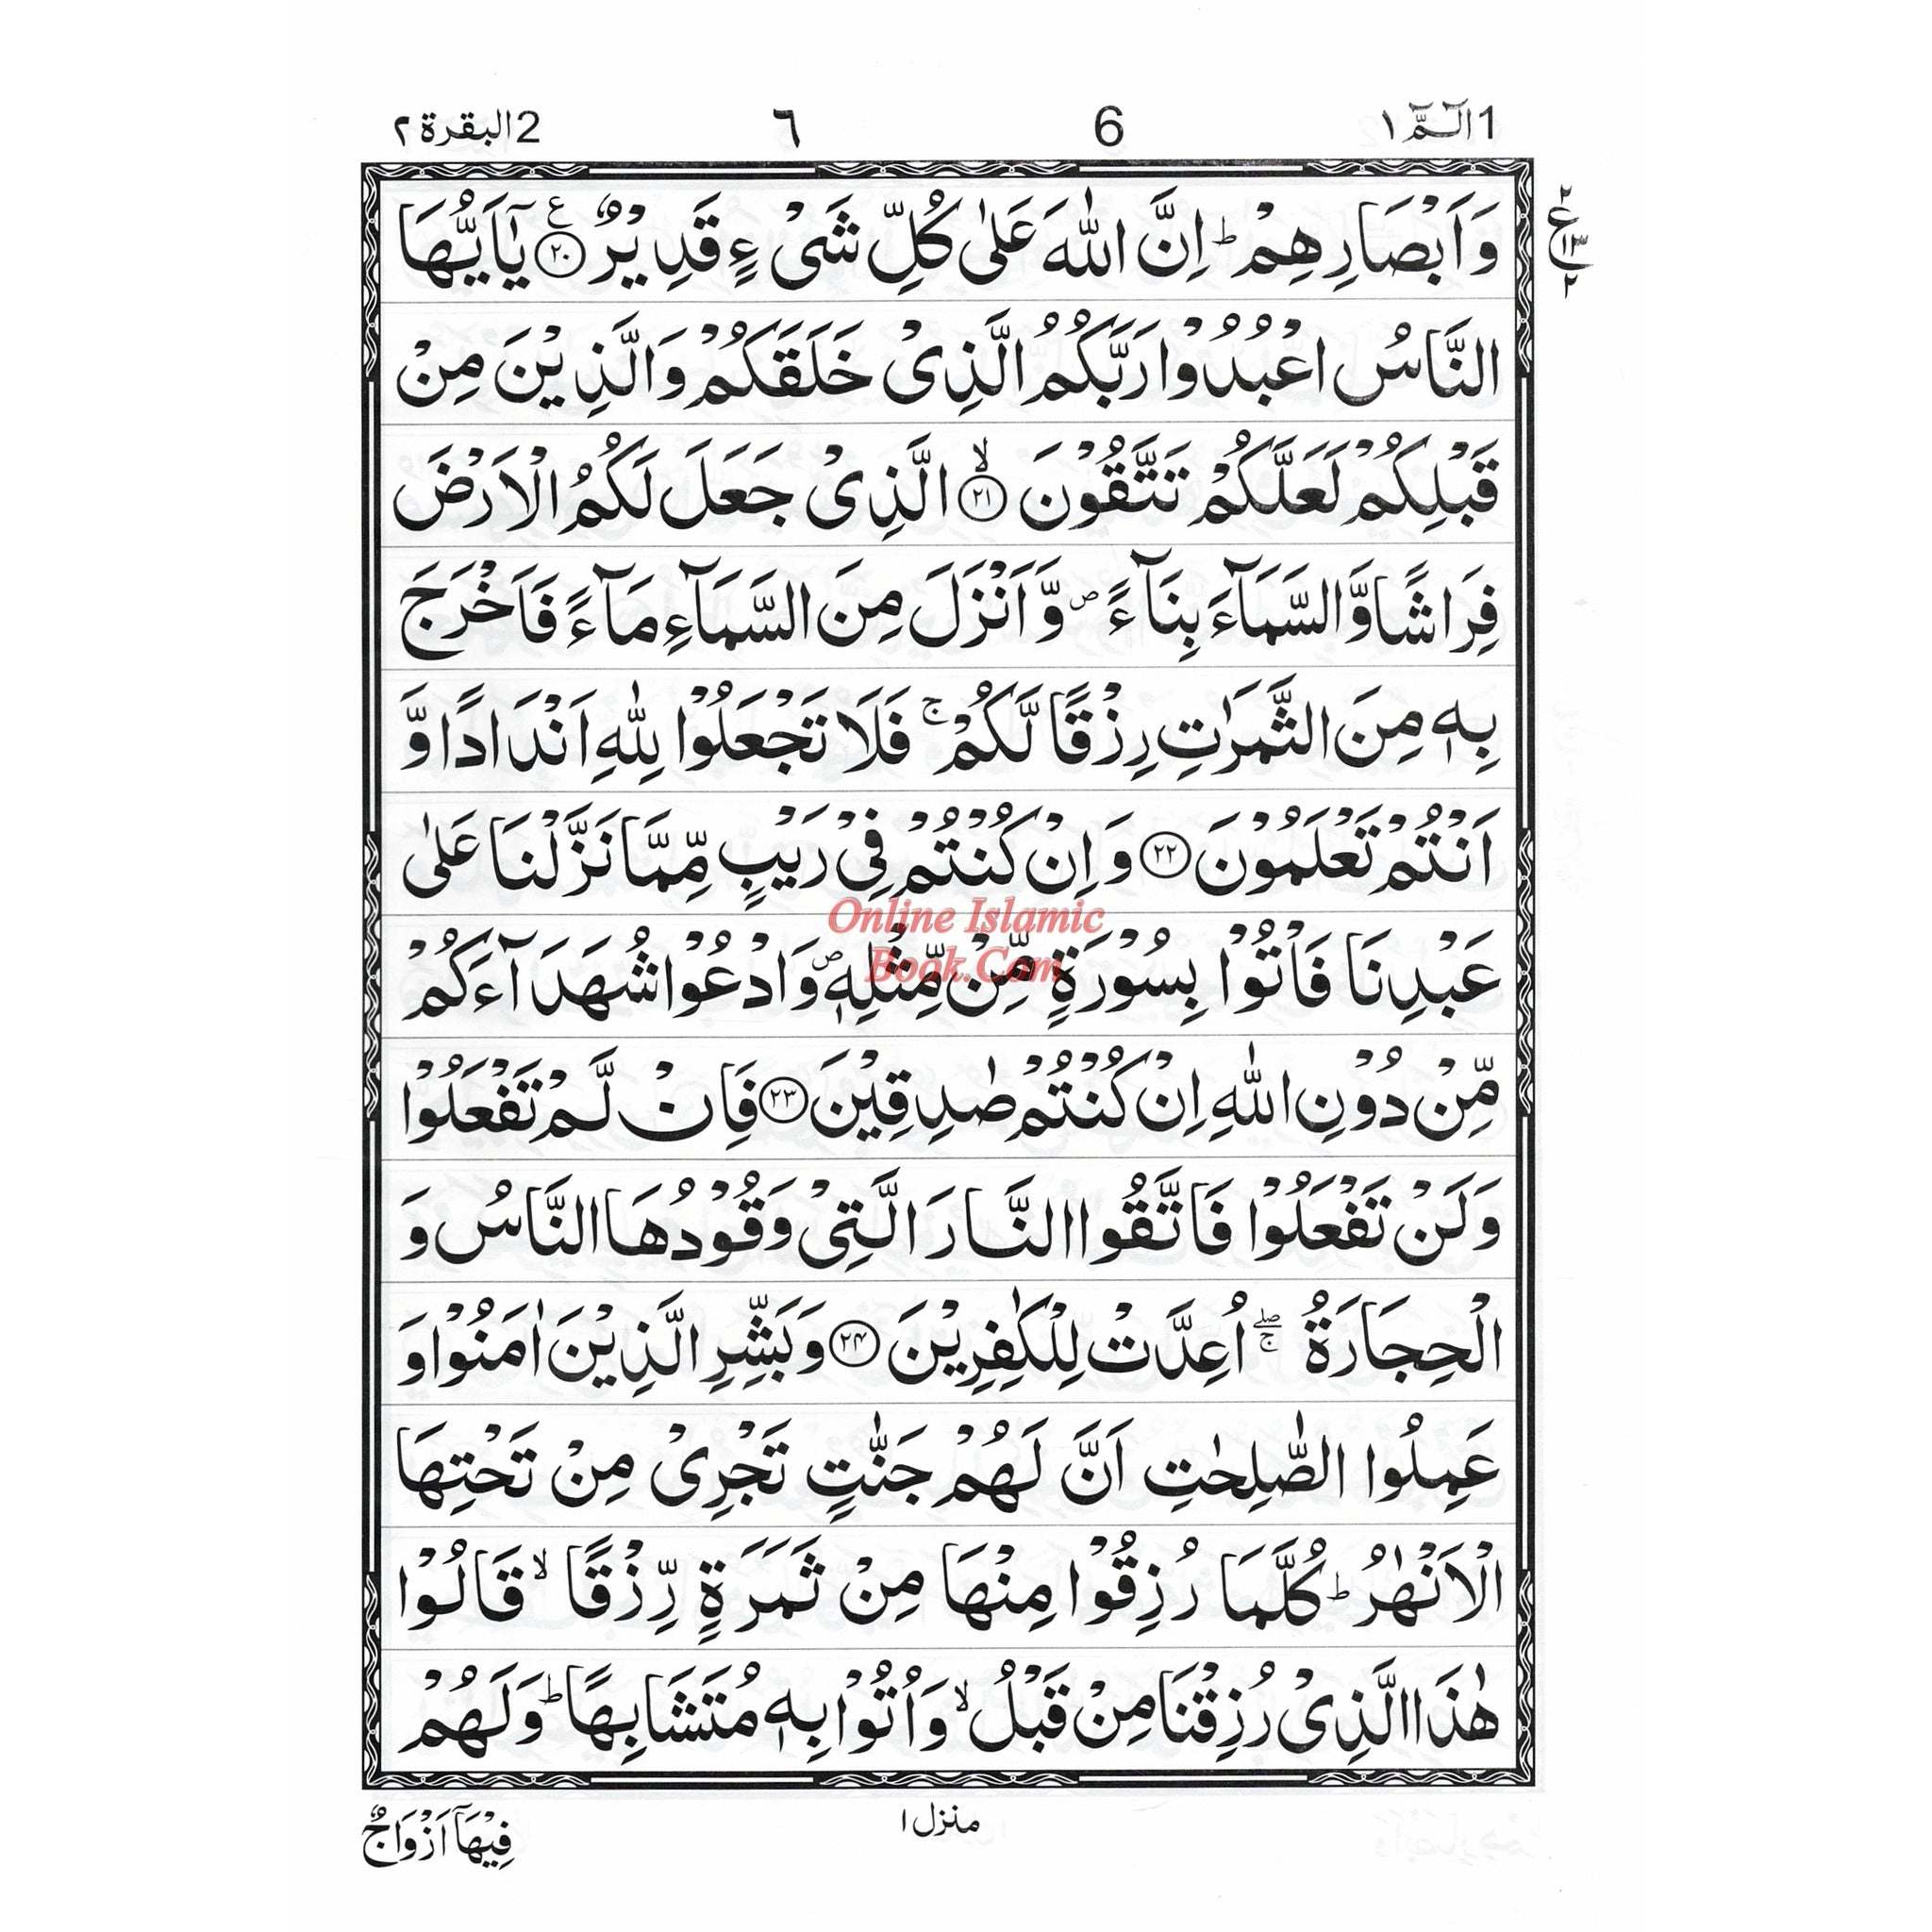 1 الٓـمّٓ ١ 6 ٦ 2 البقرة ٢
وَاَبْصَارِهِمْ ؕ اِنَّ اللّٰهَ عَلٰى كُلِّ شَىْءٍ قَدِيْرٌ ۟ع ۝٢٠ يٰۤاَيُّهَا
٢ ع ١٣ ٢
النَّاسُ اعْبُدُوْا رَبَّكُمُ الَّذِىْ خَلَقَكُمْ وَالَّذِيْنَ مِنْ
قَبْلِكُمْ لَعَلَّكُمْ تَتَّقُوْنَ ۙ۝٢١ الَّذِىْ جَعَلَ لَكُمُ الْاَرْضَ
فِرَاشًا وَّالسَّمَآءَ بِنَآءً ۪ وَّاَنْزَلَ مِنَ السَّمَآءِ مَآءً فَاَخْرَجَ
بِهٖ مِنَ الثَّمَرٰتِ رِزْقًا لَّكُمْ ۚ فَلَا تَجْعَلُوْا لِلّٰهِ اَنْدَادًا وَّ
اَنْتُمْ تَعْلَمُوْنَ ۝٢٢ وَاِنْ كُنْتُمْ فِىْ رَيْبٍ مِّمَّا نَزَّلْنَا عَلٰى
عَبْدِنَا فَاْتُوْا بِسُوْرَةٍ مِّنْ مِّثْلِهٖ ۪ وَادْعُوْا شُهَدَآءَكُمْ
Online Islamic
Book.Com
مِّنْ دُوْنِ اللّٰهِ اِنْ كُنْتُمْ صٰدِقِيْنَ ۝٢٣ فَاِنْ لَّمْ تَفْعَلُوْا
وَلَنْ تَفْعَلُوْا فَاتَّقُوا النَّارَ الَّتِىْ وَقُوْدُهَا النَّاسُ وَ
الْحِجَارَةُ ۖۚ اُعِدَّتْ لِلْكٰفِرِيْنَ ۝٢٤ وَبَشِّرِ الَّذِيْنَ اٰمَنُوْا وَ
عَمِلُوا الصّٰلِحٰتِ اَنَّ لَهُمْ جَنّٰتٍ تَجْرِىْ مِنْ تَحْتِهَا
الْاَنْهٰرُ ؕ كُلَّمَا رُزِقُوْا مِنْهَا مِنْ ثَمَرَةٍ رِّزْقًا ۙ قَالُوْا
هٰذَا الَّذِىْ رُزِقْنَا مِنْ قَبْلُ ۙ وَاُتُوْا بِهٖ مُتَشَابِهًا ؕ وَلَهُمْ
منزل ١
فِيْهَاۤ اَزْوَاجٌ